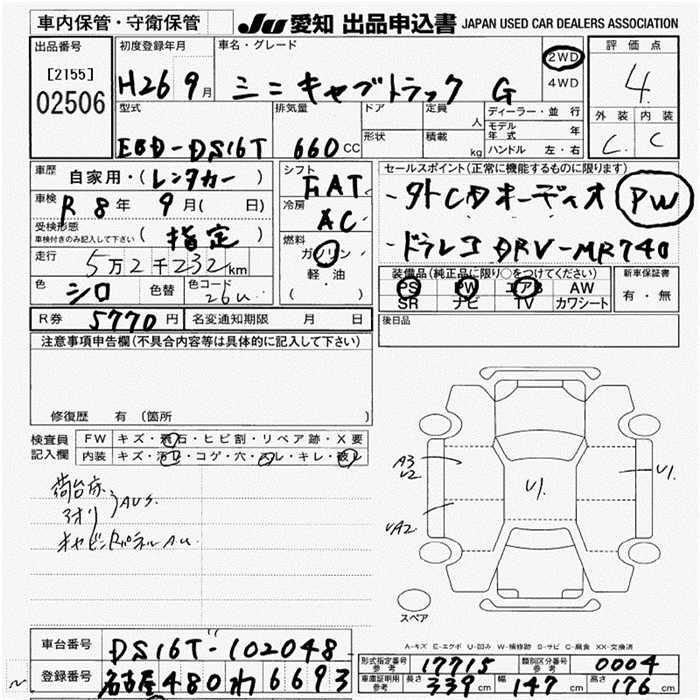 車内保管・守衛保管 Ju 愛知 出品申込書 JAPAN USED CAR DEALERS ASSOCIATION
出品番号 [2155] 02506
初度登録年月 H26 9月
車名・グレード ミニキャブトラック G
2WD
4WD
評価点 4
外装 内装
C C
型式 EBD-DS16T
排気量 660cc
ドア
形状
定員 人
積載 kg
ディーラー・並行
モデル年式 年
ハンドル 左・右
車歴 自家用・(レンタカー)
車検 R8年9月(日)
受検形態 車検付きのみ記入して下さい (指定)
走行 5万2千232km
色 シロ 色替 色コード 26U
シフト FAT
冷房 AC
燃料 ガソリン
軽・油
( )
セールスポイント(正常に機能するものに限ります)
-外CDオーディオ PW
-ドラレコ DRV-MR740
装備品(純正品に限り○をつけてください)
PS PW エアB AW
SR ナビ TV カワシート
新車保証書
有・無
R券 5770円 名変通知期限 月 日
後日品
注意事項申告欄(不具合内容等は具体的に記入して下さい)
修復歴 有(箇所
検査員記入欄
FW キズ・飛石・ヒビ割・リペア跡・X要
内装 キズ・汚レ・コゲ・穴・スレ・キレ・破レ
荷台床
アオリ AU3.
キャビンパネル AU.
A3
U2
UA2
U1.
U1.
スペア
A-キズ E-エクボ U-凹み W-補修跡 S-サビ C-腐食 XX-交換済
車台番号 DS16T-102048
登録番号 名古屋 480 わ 6693
形式指定番号 参考 17715 類別区分番号 参考 0004
車庫証明用 参考 長さ 339cm 幅 147cm 高さ 176cm